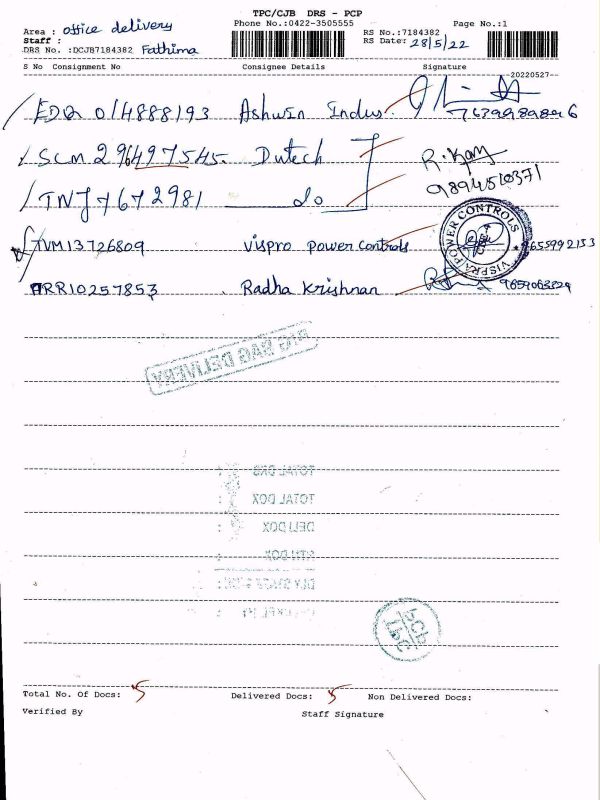 TPC/CJB DRS - PCP
Area : office delivery Phone No.:0422-3505555 RS No.:7184382 Page No.:1
Staff : RS Date: 28/5/22
DRS No. :DCJB7184382 Fathima
S No Consignment No Consignee Details Signature
20220527--
EDQ 014888193 Ashwin Indus.
SCM 296497545 Dutech R. 
TNJ 7672981 do 9894510371
TVM13726809 Vispro power controls VISPRA POWER CONTROLS
ARR10257853 Radha Krishnan
BIG BAG DELIVERY
TOTAL DRS :
TOTAL DOX :
DELI DOX :
RTN DOX
Total No. Of Docs: 5 Delivered Docs: 5 Non Delivered Docs:
Verified By Staff Signature